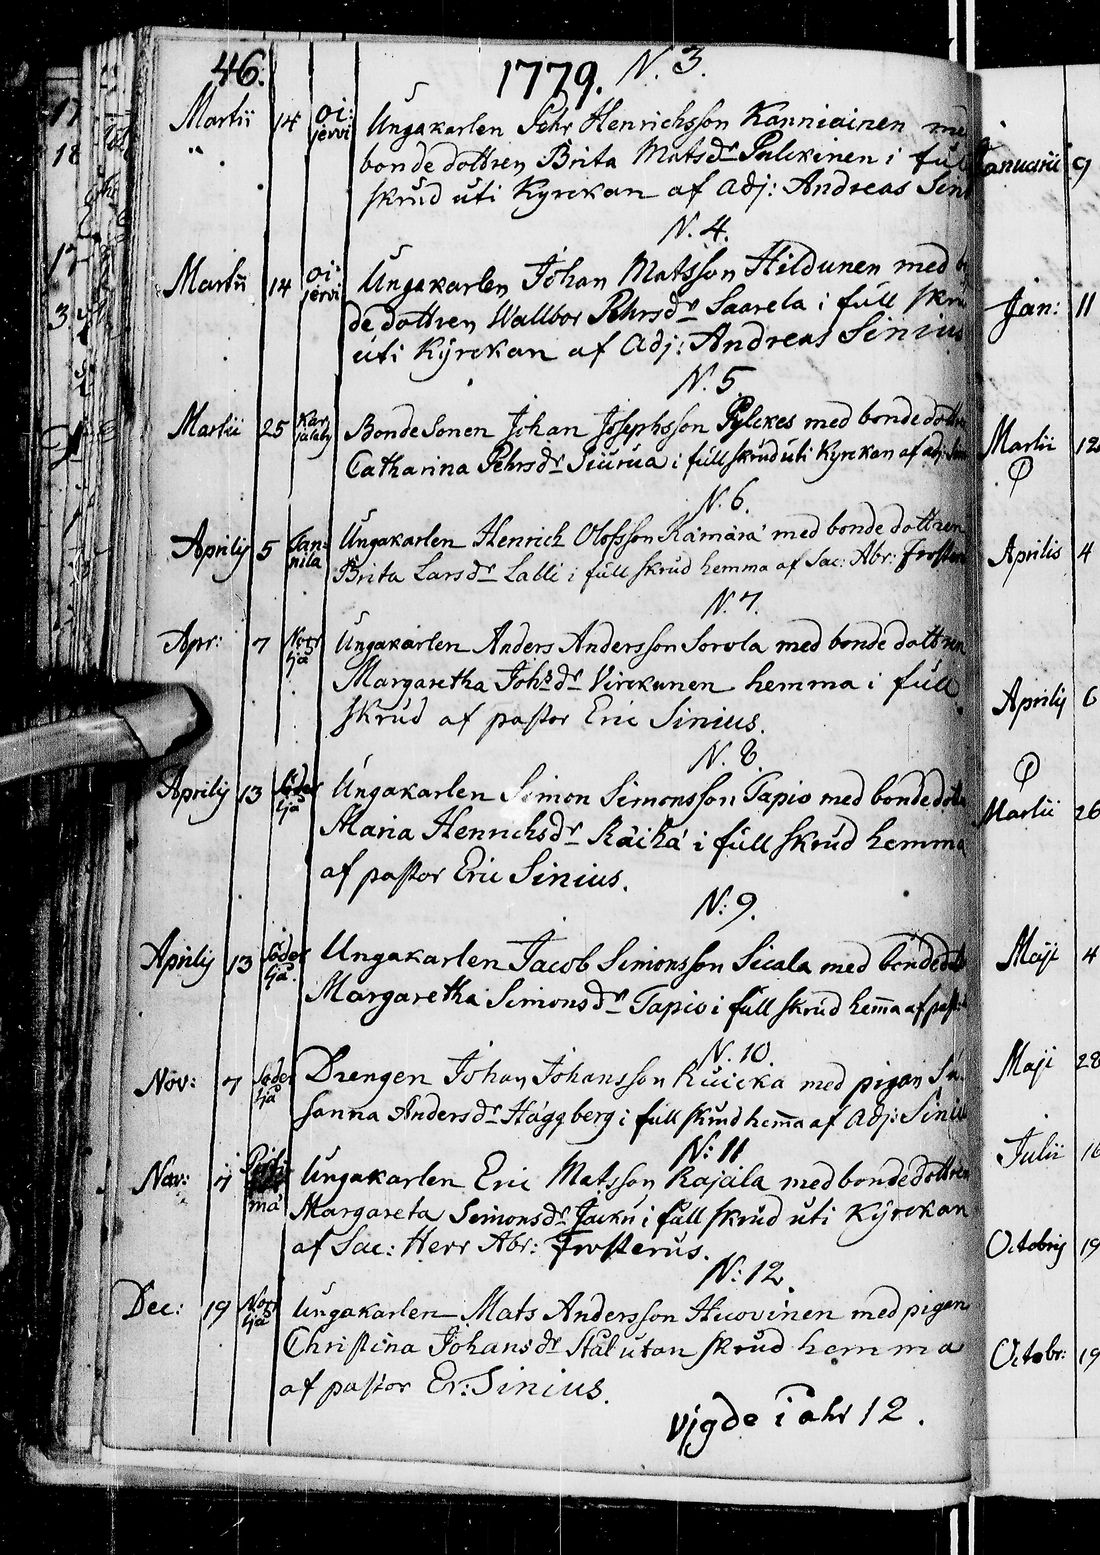 46. 1779. N. 3.
Martii 14 oi: jervi Ungakarlen Pehr Henrichsson Kanniainen me
bonde dottren Brita Matsdr Pulckinen i full
skrud uti Kyrckan af adj: Andreas Sini
N. 4.
Martii 14 oi: jervi Ungakarlen Johan Matsson Hildunen med
de dottren Wallbor Pehrsdr Saarela i full skru
uti Kyrckan af adj: Andreas Sinius
N. 5
Martii 25 Kar jalaby Bonde Sonen Johan Josephsson Pylckes med bonde dottre
Catharina Pehrsdr Siurua i full skrud uti Kyrckan af adj: Sin
N. 6.
Aprilij 5 Jan: nila Ungakarlen Henrich Olofsson Kámárá med bonde dottren
Brita Larsdr Lalli i full skrud hemma af Sac: Abr: Froster
N. 7.
Apr: 7 Norr ljå Ungakarlen Anders Andersson Sorola med bonde dottren
Margaretha Johsdr Virckunen hemma i full
skrud af pastor Eric Sinius.
N. 8.
Aprilij 13 Söder ljå Ungakarlen Simon Simonsson Tapio med bonde dott
Maria Henrichsdr Räihä i full skrud hemma
af pastor Eric Sinius.
N: 9.
Aprilij 13 Söder ljå Ungakarlen Jacob Simonsson Sicala med bonde dot
Margaretha Simonsdr Tapio i full skrud hem̄a af past:
N. 10.
Nov: 7 Söder ljå Drengen Johan Johansson Kuicka med pigan Su
sanna Andersdr Häggberg i full skrud hem̄a af adj: Siniu
N: 11
Nov: 7 má Ungakarlen Eric Matsson Rajala med bonde dottren
Margareta Simonsdr Jácku i full skrud uti Kyrckan
af Sac: Herr Abr: Frosterus.
N: 12.
Dec: 19 Norr ljå Ungakarlen Mats Andersson Hucovinen med pigan
Christina Johansdr Stål utan skrud hemma
af pastor Er: Sinius.
vigde i åhr 12.
Januarii 9
Jan: 11
Martii 12
Aprilis 4
Aprilij 6
Martii 26
Maji 4
Maji 28
Julii 16
Octobris 19
Octobr: 19